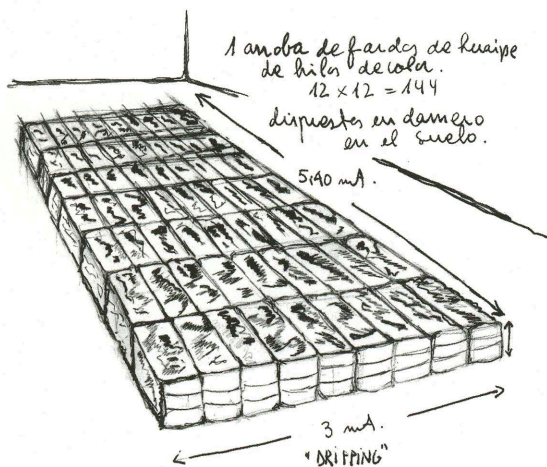 1 arroba de fardos de huaipe
de hilos de color.
12 x 12 = 144
dispuestos en damero
en el suelo.
5,40 mt.
3 mt.
"DRIPPING"